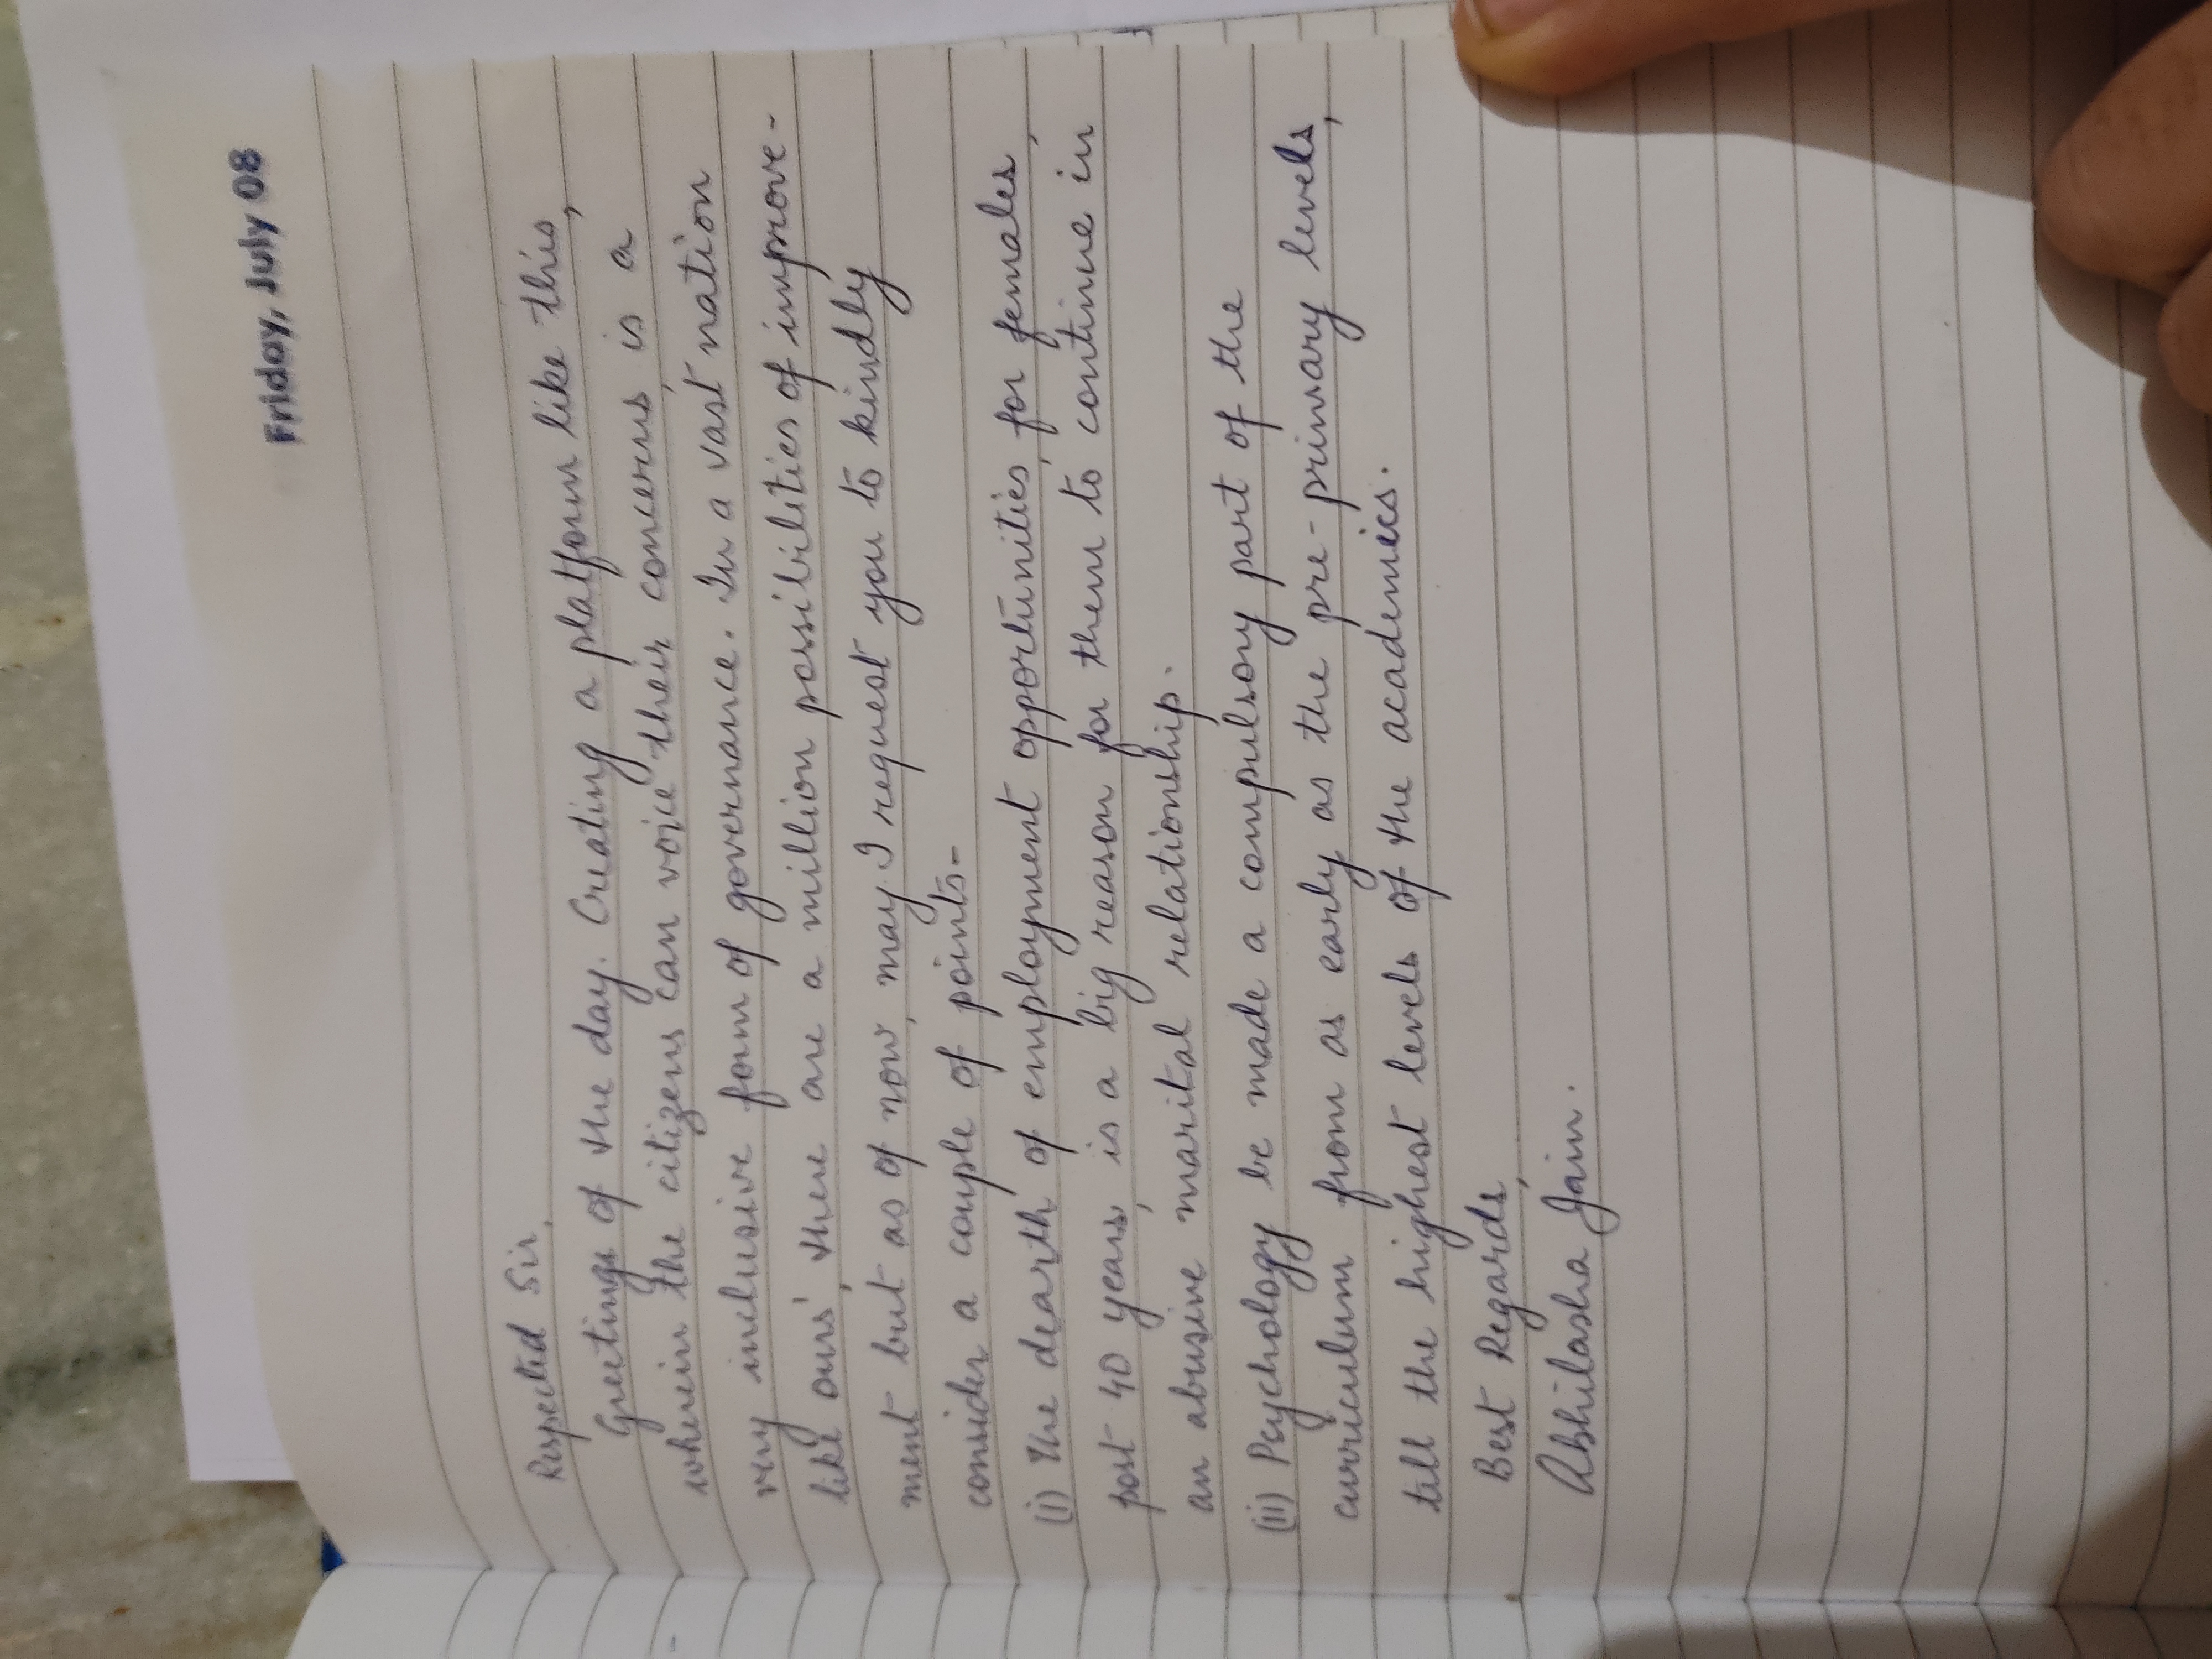 Friday, July 08
Respected Sir,
Greetings of the day. Creating a platform like this,
wherein the citizens can voice their concerns, is a
very inclusive form of governance. In a vast nation
like ours', there are a million possibilities of improve-
ment but as of now, may I request you to kindly
consider a couple of points-
(i) The dearth of employment opportunities, for females,
post 40 years, is a big reason for them to continue in
an abusive marital relationship.
(ii) Psychology be made a compulsory part of the
curriculum from as early as the pre-primary levels,
till the highest levels of the academics.
Best Regards,
Abhilasha Jain.